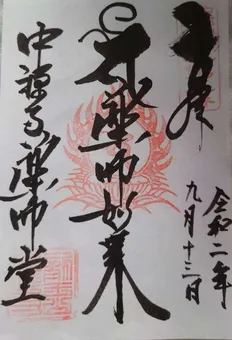 奉拝
令和二年
九月十三日
薬師如来
中禅寺薬師堂